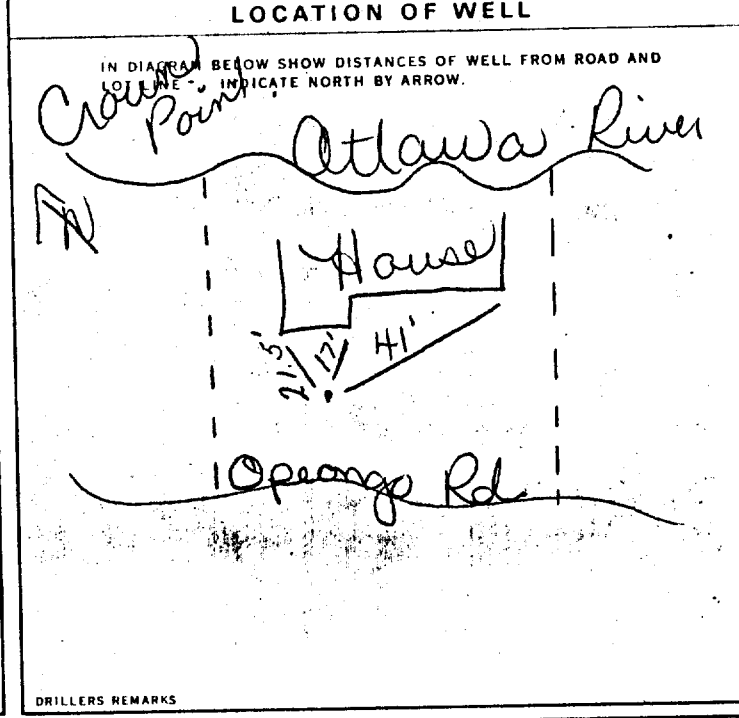 LOCATION OF WELL
IN DIAGRAM BELOW SHOW DISTANCES OF WELL FROM ROAD AND
LOT LINE. INDICATE NORTH BY ARROW.
Crown
Point
Ottawa River
N
House
21.5'
17'
41'
Opeongo Rd
DRILLERS REMARKS